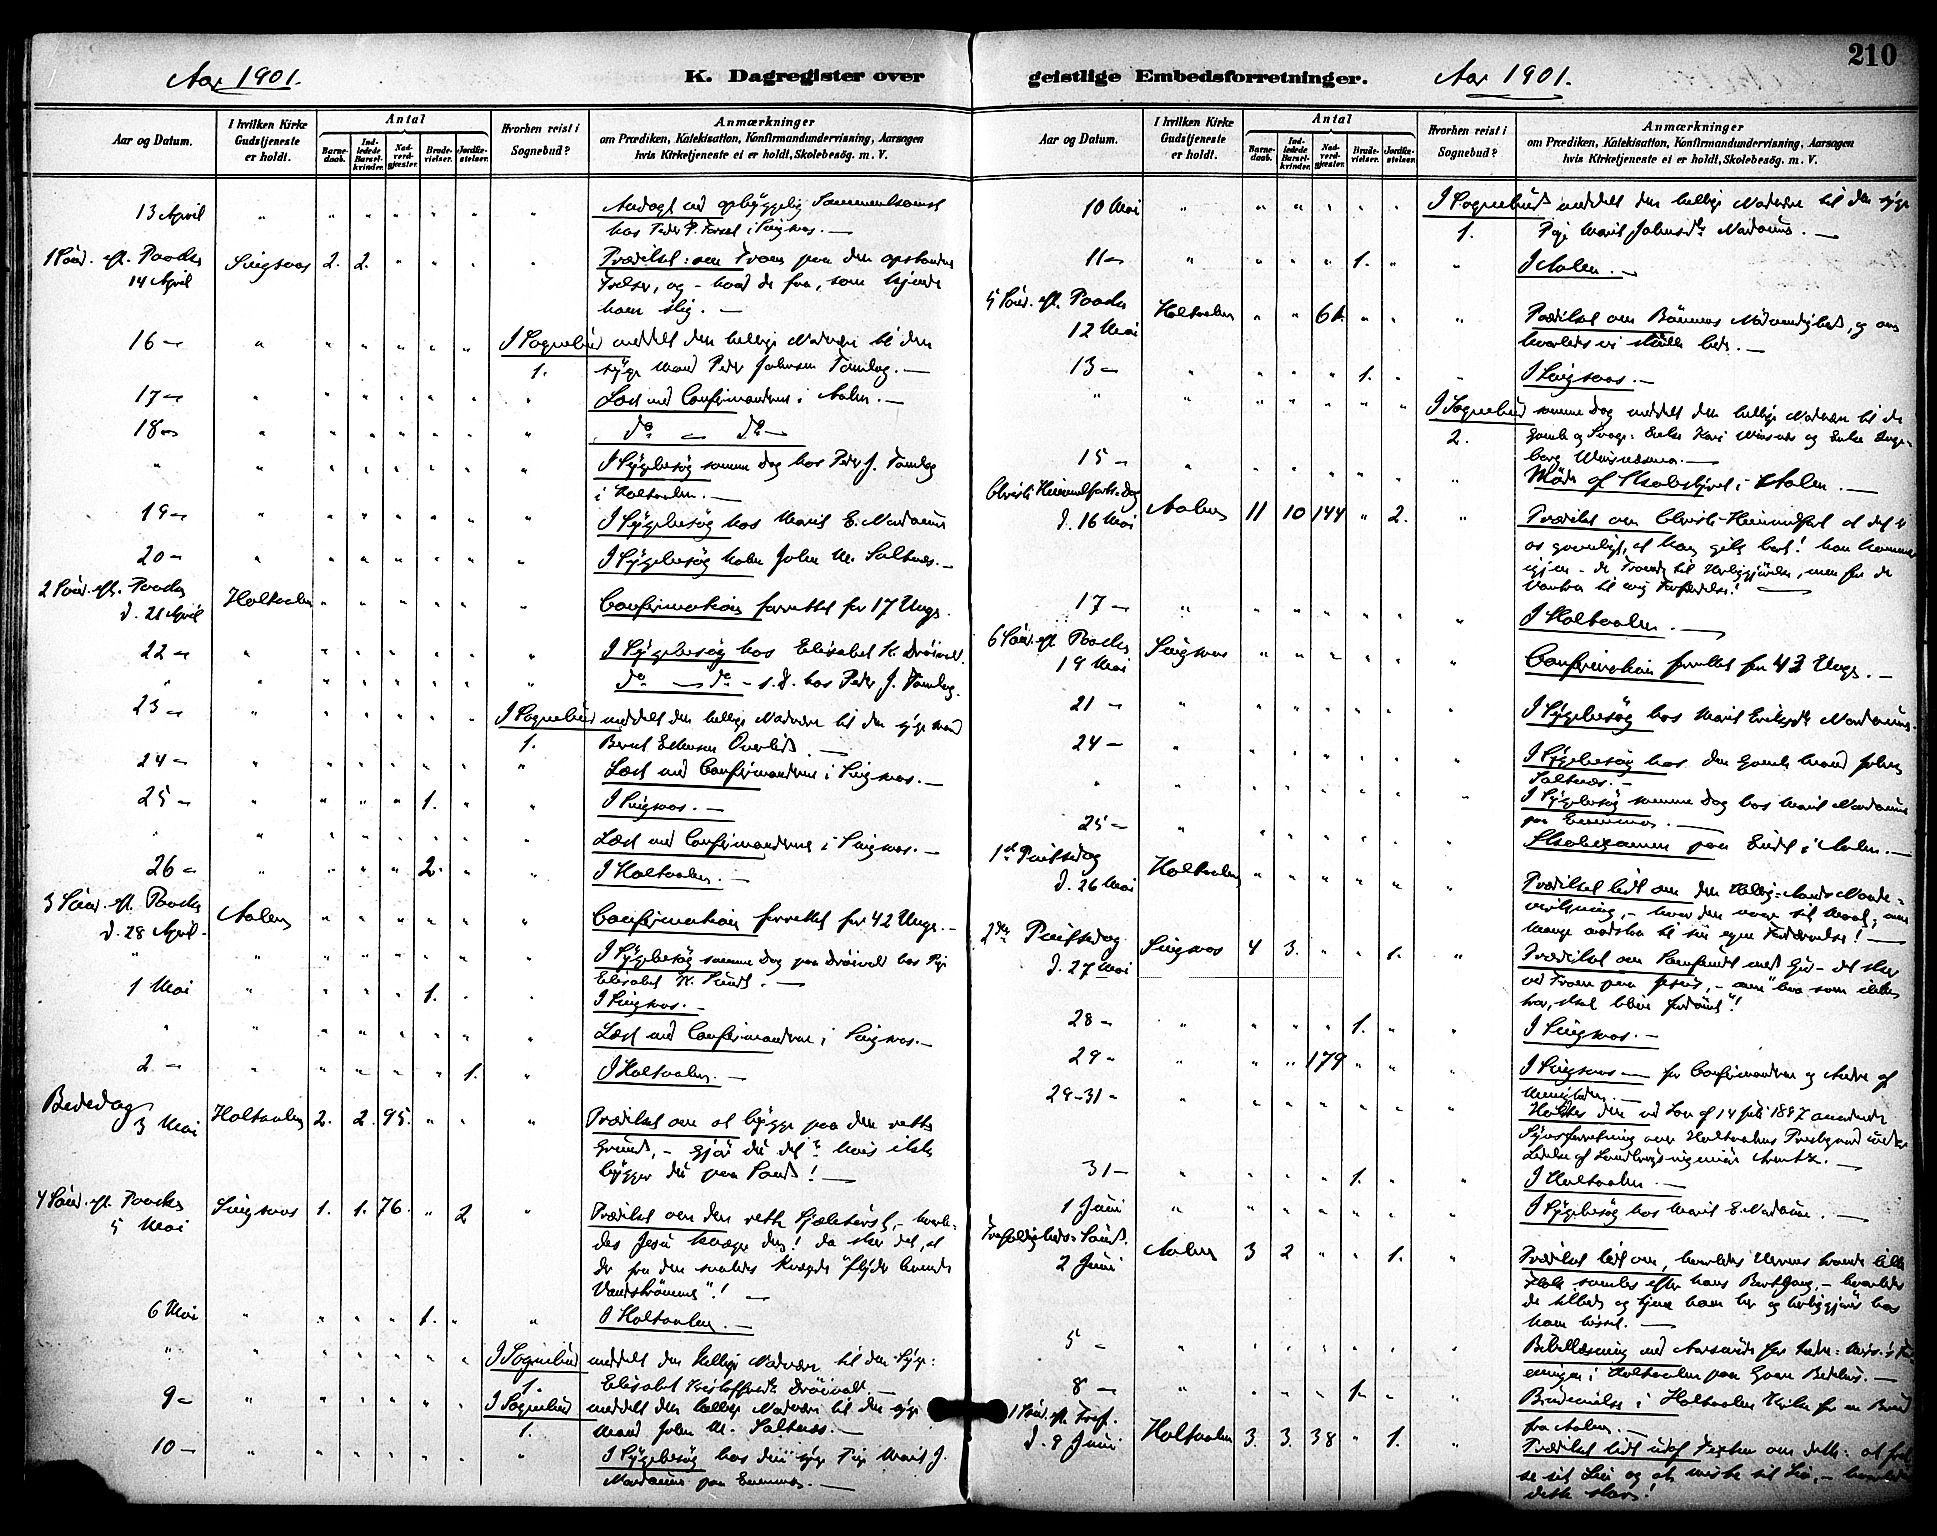 Aar 1901.
K. Dagregister over
Aar og Datum.
I hvilken Kirke Gudstjeneste er holdt.
Antal
Barne-daab.
Ind-ledede Barsel-kvinder.
Nad-verd-gjæster.
Brude-vielser.
Jordfæ-stelser.
Hvorhen reist i Sognebud?
Anmærkninger
om Prædiken, Katekisation, Konfirmandundervisning, Aarsagen
hvis Kirketjeneste ei er holdt, Skolebesøg. m. V.
13 April " " " " " " " Andagt ved opbyggelig Sammenkomst
hos Peder P. i Singsaas. —
1 Sønd. eft. Paaske Singsaas 2. 2. " " " " Prædiket: om Troen paa den opstandne
14 April Frelser, og - hvad de faa, som kjende
ham slig. —
16 — " " " " " " I Sognebud meddelt den hellige Nadvere til den
1. syge Mand Peder Johnsen Tamlag. —
17 — " " " " " " " Læst med Confirmanderne i Aalen. —
18 — " " " " " " " do — do —
" " " " " " " " I Sygebesøg samme Dag hos Peder J. Tamlag
i Holtaalen. —
19 — " " " " " " " I Sygebesøg hos Marit E.
20 — " " " " " " " I Sygebesøg John M. —
2 Sønd. eft. Paaske Holtaalen " " " " " " Confirmation forrettet for 17 Unge.
d. 21 April
22 — " " " " " " " I Sygebesøg hos Elisabet K. Drøivold.
" " " " " " " " do — do — s. D. hos Peder J. Tamlag.
23 — " " " " " " I Sognebud meddelt den hellige Nadvere til den syge Mand
1. Bernt —
24 — " " " " " " " Læst med Confirmanderne i Singsaas. —
25 — " " " " 1. " " I Singsaas. —
" " " " " " " " Læst med Confirmanderne i Singsaas. —
26 — " " " " 2. " " I Holtaalen. —
3 Sønd. eft. Paaske Aalen " " " " " " Confirmation forrettet for 42 Unge. —
d. 28 April.
" " " " " " " " I Sygebesøg samme Dag paa Drøivold hos Pige
Elisabet K. —
1 Mai " " " " 1. " " I Singsaas. —
" " " " " " " " Læst med Confirmanderne i Singsaas. —
2 — " " " " " 1. " I Holtaalen. —
Bededag Holtaalen 2. 2. 95. " " " Prædiket om at bygge paa den rette
3 Mai Grund, - gjør du det? hvis ikke
bygger du paa Sand! —
4 Sønd. eft. Paaske Singsaas 1. 1. 76. " 2 " Prædiket om den rette Sjæletørst, - hvorle-
5 Mai des Jesu dem! da sker det, at
der fra den saaledes "flyder levende
Vandstrømme"! —
6 Mai " " " " 1. " " I Holtaalen. —
" " " " " " " I Sognebud meddelt den hellige Nadvere til den Syge:
1. Elisabet Drøivold. —
9 — " " " " " " I Sognebud meddelt den hellige Nadvere til den syge
1. Mand John M. —
10 — " " " " " " " I Sygebesøg hos den syge Pige Marit J.
paa —
210
geistlige Embedsforretninger.
Aar 1901.
Aar og Datum.
I hvilken Kirke Gudstjeneste er holdt.
Antal
Barne-daab.
Ind-ledede Barsel-kvinder.
Nad-verd-gjæster.
Brude-vielser.
Jordfæ-stelser.
Hvorhen reist i Sognebud?
Anmærkninger
om Prædiken, Katekisation, Konfirmandundervisning, Aarsagen
hvis Kirketjeneste ei er holdt, Skolebesøg. m. V.
10 Mai " " " " " " I Sognebud meddelt den hellige Nadvere til den syge
1. Pige Marit —
11 — " " " " 1. " " I Aalen. —
5 Sønd. eft. Paaske Holtaalen " " " " " Prædiket om Bønnens Nødvendighed, og om
12 Mai hvorledes vi skulle bede. —
13 — " " " " 1. " " I Singsaas. —
" " " " " " " I Sognebud samme Dag meddelt den hellige Nadvere til de
2. Gamle og Svage: Enke Kari og Enke Inge-
borg —
15 — " " " " " " " Møde af Skolestyret i Aalen. —
Christi Himmelfarts-Dag Aalen 11 10 144 " 2. " Prædiket om Christi Himmelfart at det er
d. 16 Mai os gavnligt, at han gik bort! han kommer
igjen - de Troende til Herliggjørelse, men for de
Vantro til evig Fortabelse! —
17 — " " " " " " " I Holtaalen. —
6 Sønd. eft. Paaske Singsaas " " " " " " Confirmation forrettet for 42 Unge. —
19 Mai
21 — " " " " " " " I Sygebesøg hos Marit
24 — " " " " " " " I Sygebesøg hos den Gamle Mand John
" " " " " " " " I Sygebesøg samme Dag hos Marit
paa —
25 — " " " " " " " Skoleexamen paa i Aalen. —
1ste Pintsedag Holtaalen " " " " " " Prædiket lidt om den Hellig-Aands Naade-
d. 26 Mai virkning, -
mange modstaa til sin egen Fordærvelse! —
2den Pintsedag Singsaas 4 3. " " 1. " Prædiket om Samfundet med Gud - det sker
d. 27 Mai ved Troen paa Jesus, - men "hvo som ikke
tror, skal blive fordømt"!
28 — " " " " 1. " " I Singsaas. —
29 — " " " 179 " " " I Singsaas — for Confirmanderne og Andre af
Menigheden. —
29-31 — " " " " " " " Holdtes den ved Lov af 14 Juli 1897
Synsforretning over Holtaalens Præstegaard under
Ledelse af —
31 — " " " " 1. " " I Holtaalen. —
1 Juni I Sygebesøg hos Marit E. —
Trefoldigheds-Sønd. Aalen 3 2 " " 1. " Prædiket lidt om, hvorledes Herrens troende lille
2 Juni Flok samles efter hans Bortgang, - hvorledes
de tilbede og tjene ham her og herliggjøres hos
ham hisset. —
5 — " " " " " " " Bibellæsning med
i Holtaalen paa Bedehus. —
8 — " " " " 1. " " Brudevielse i Holtaalen Kirke for en Brud
fra Aalen. —
1 Sønd. eft. Tref. Holtaalen 3. 3. 38 " 1. " Prædiket lidt udaf Texten om dette: at frel-
d. 9 Juni se sit Liv og at miste sit Liv, -
dette sker!